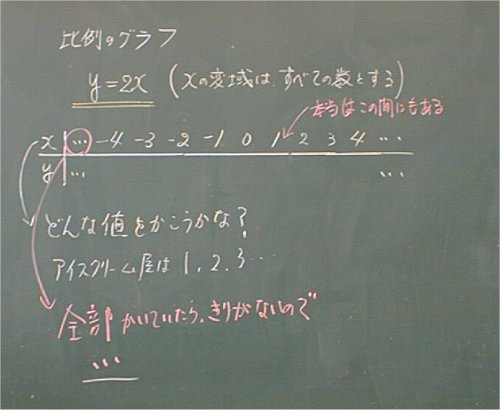 比例のグラフ
y=2x (xの変域は、すべての数とする)
本当はこの間にもある
x … -4 -3 -2 -1 0 1 2 3 4 …
y … …
どんな値をかこうかな?
アイスクリーム屋は 1, 2, 3 …
全部かいていたら、きりがないので
…